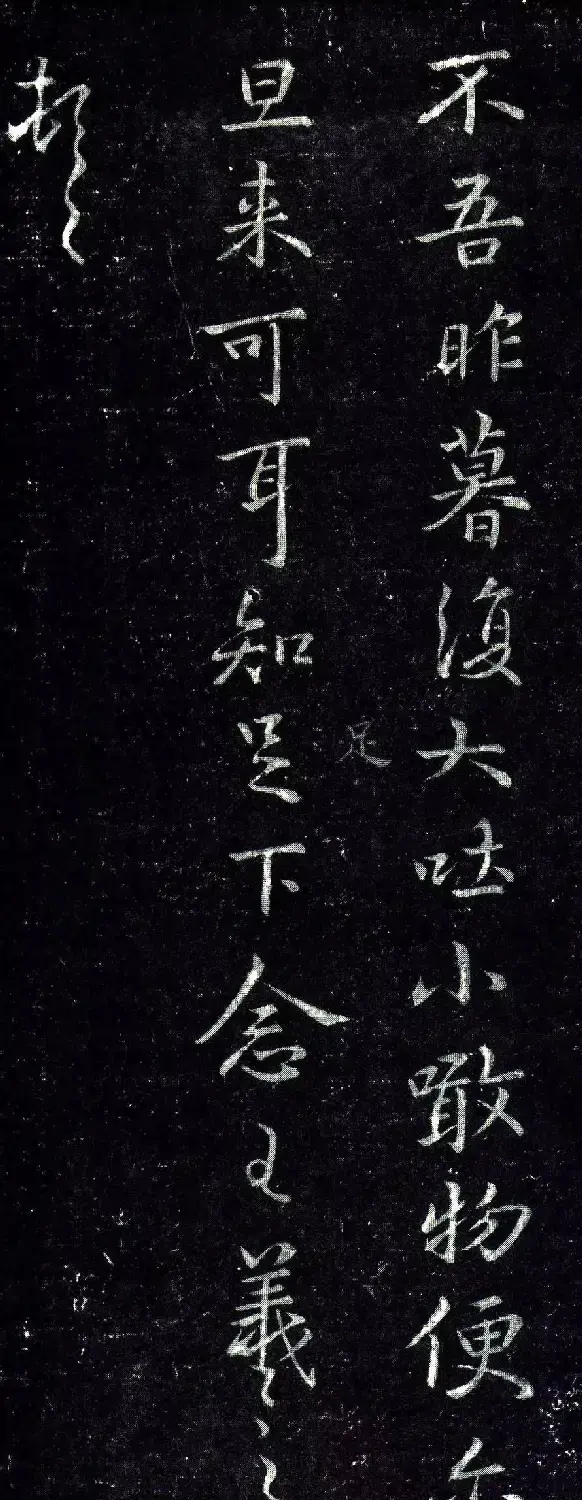 不吾昨暮復大吐小噉物便尔
足
旦来可耳知足下念王羲之
頓首